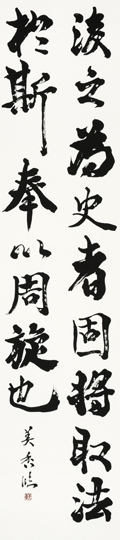 後之為史者固將取法
於斯奉以周旋也
美香臨